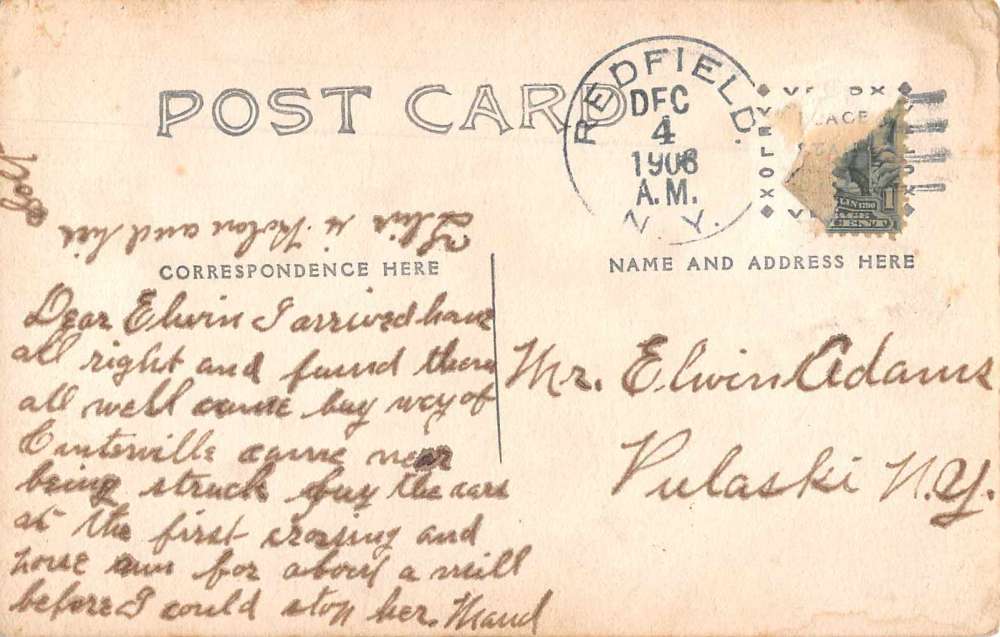 POST CARD
REDFIELD
DEC
4
1908
A.M.
N. Y.
PLACE
1
CENT
This is Rolon and his
Colt
CORRESPONDENCE HERE
NAME AND ADDRESS HERE
Dear Elwin I arrived home
all right and found them
all well came buy way of
Centerville came near
being struck buy the cars
at the first crossing and
horse run for about a mill
before I could stop her. Maud
Mr. Elwin Adams
Pulaski N.Y.